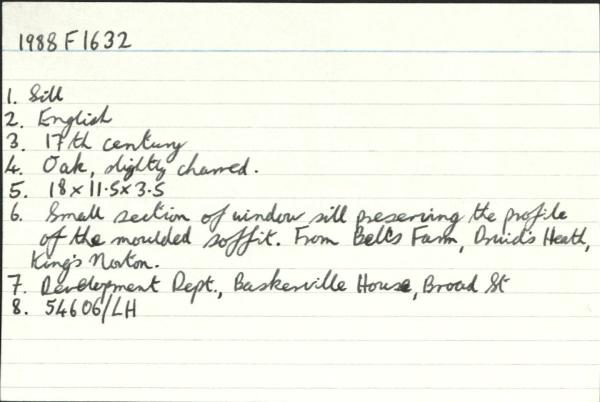 1988 F 1632
1. Sill
2. English
3. 17th century
4. Oak, slightly charred.
5. 18 x 11.5 x 3.5
6. Small section of window sill preserving the profile
of the moulded soffit. From Bells Farm, Druids Heath,
King's Norton.
7. Development Dept., Baskerville House, Broad St
8. 54606/LH